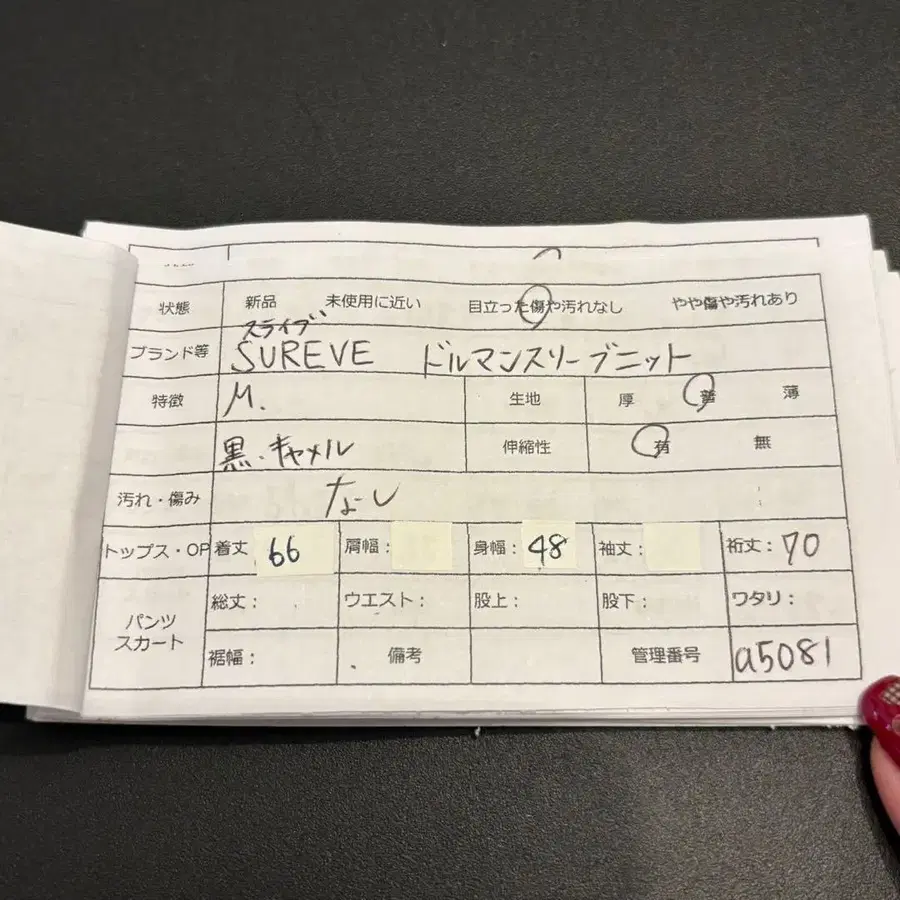 状態 新品 未使用に近い 目立った傷や汚れなし やや傷や汚れあり
スライブ
ブランド等 SUREVE ドルマンスリーブニット
特徴 M. 生地 厚 普 薄
黒.キャメル 伸縮性 有 無
汚れ・傷み なし
トップス・OP 着丈 66 肩幅: 身幅: 48 袖丈: 裄丈: 70
パンツ 総丈: ウエスト: 股上: 股下: ワタリ:
スカート
裾幅: 備考 管理番号 a5081